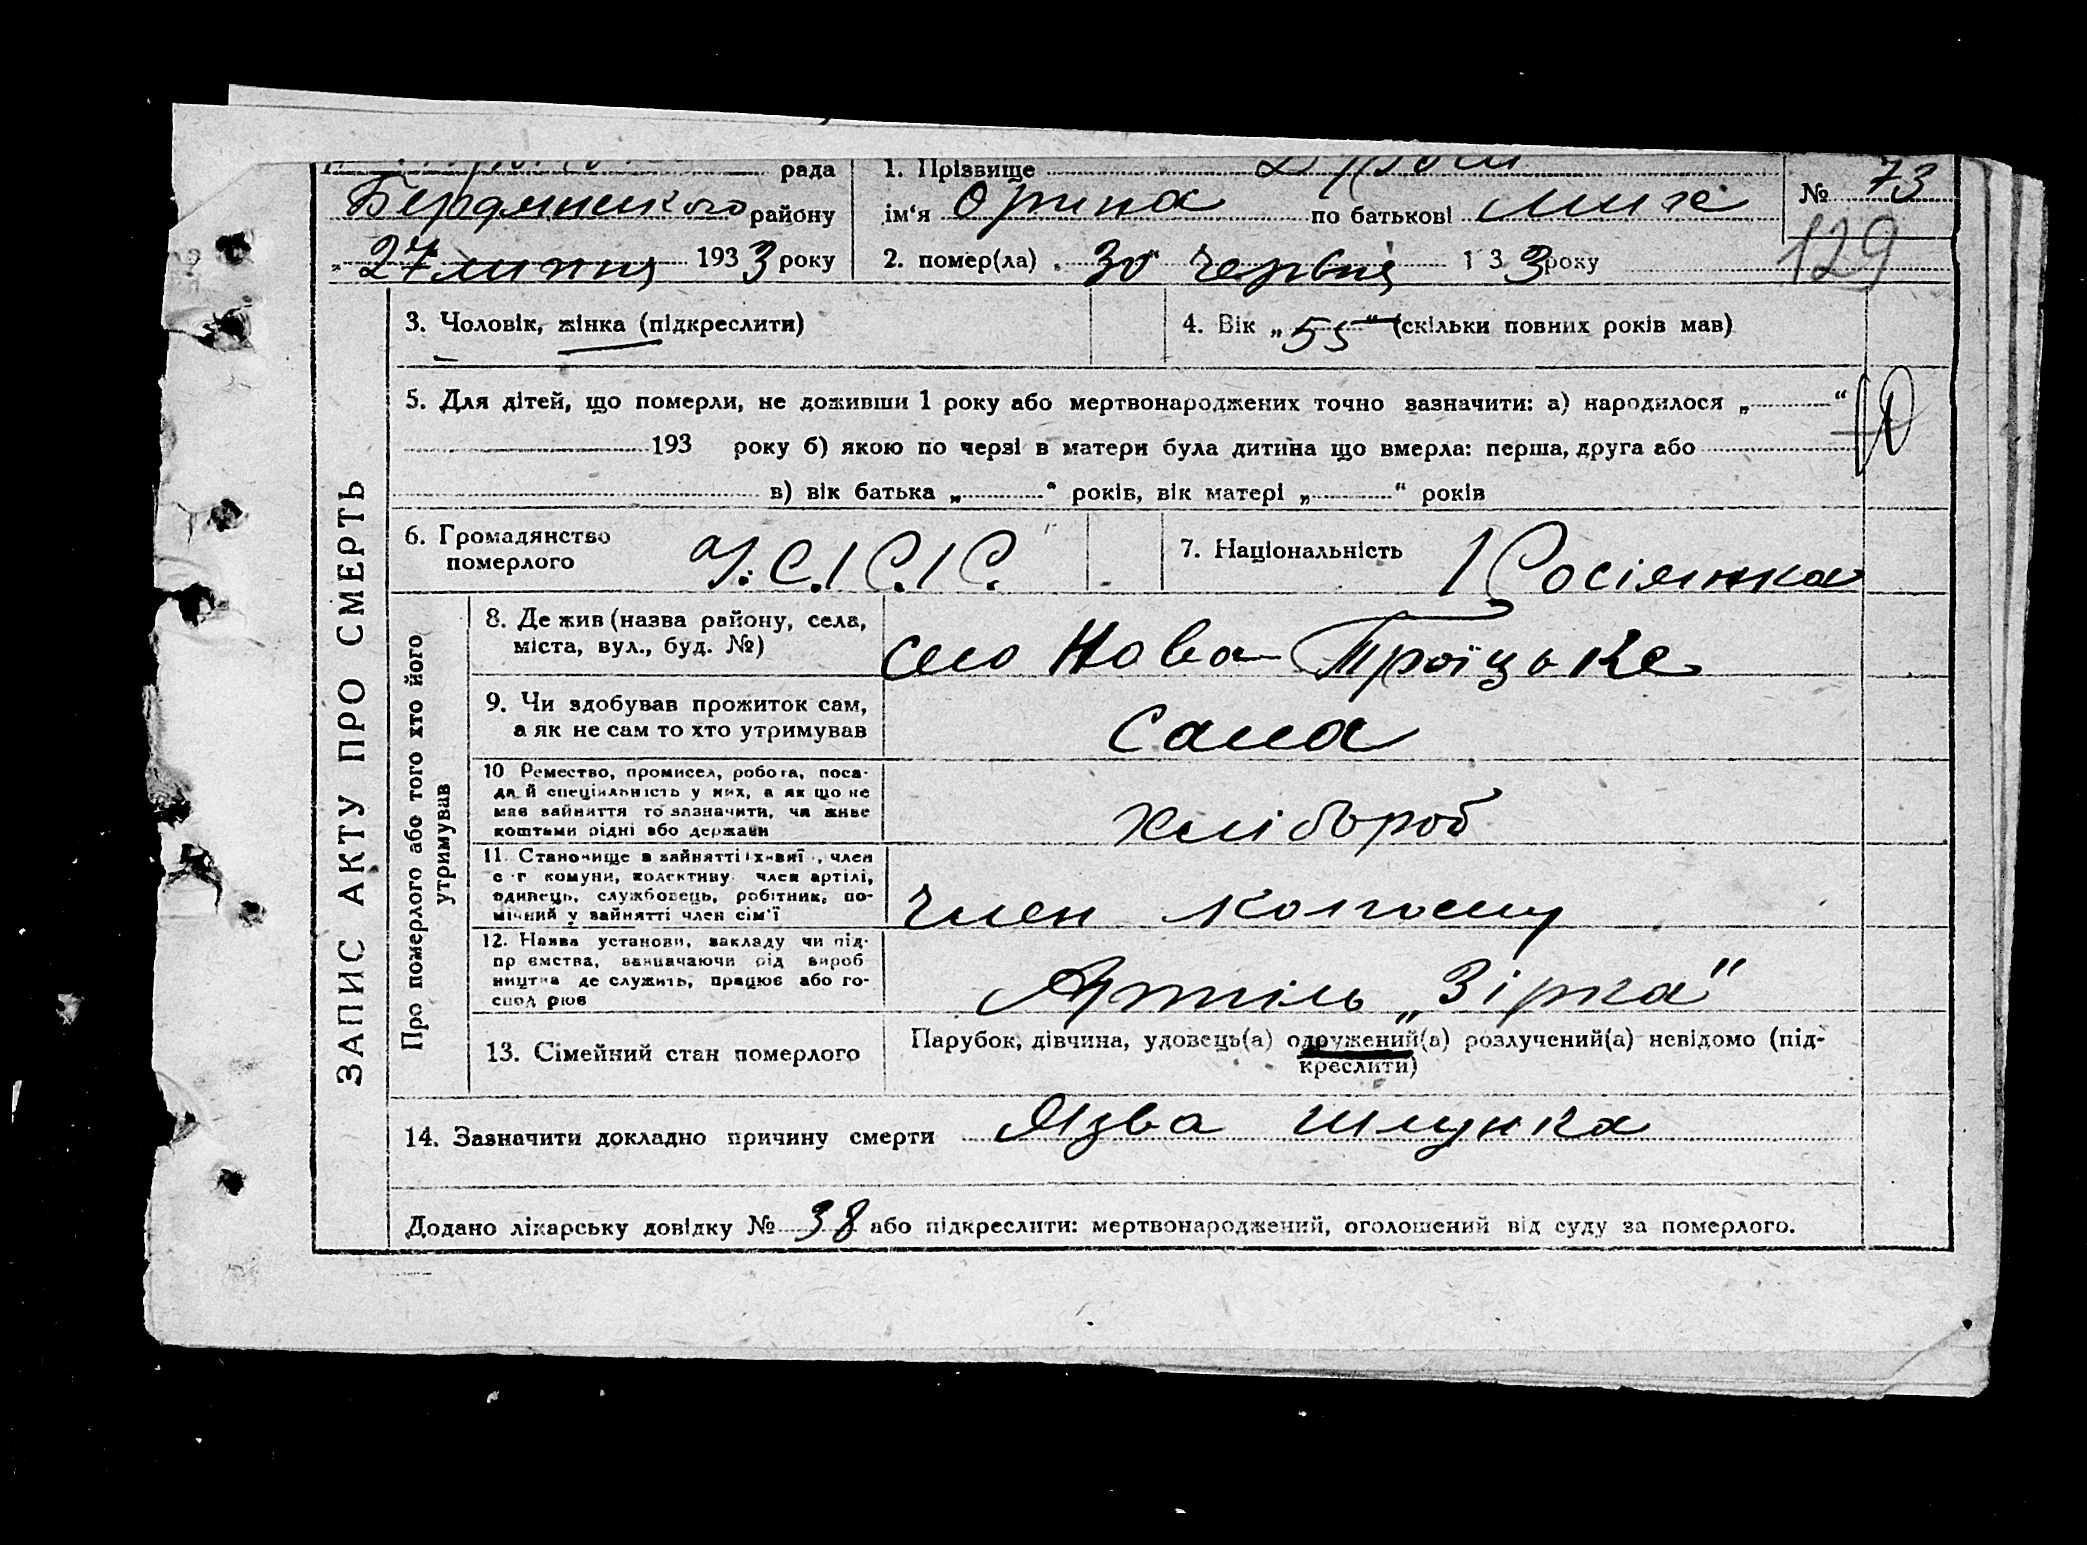 рада
Бердянського району
„ 27 липня 1933 року
1. Прізвище
ім'я Орина по батькові
2. помер(ла) „ 30 червня 1 3 3 року
№ 73
129
ЗАПИС АКТУ ПРО СМЕРТЬ
3. Чоловік, жінка (підкреслити)
4. Вік „ 55 " (скільки повних років мав)
5. Для дітей, що померли, не доживши 1 року або мертвонароджених точно зазначити: а) народилося „ “
193 року б) якою по черзі в матери була дитина що вмерла: перша, друга або
в) вік батька „ “ років, вік матері „ “ років
6. Громадянство
померлого
У.С.Р.Р.
7. Національність Росіянка
Про померлого або того хто його
утримував
8. Де жив (назва району, села,
міста, вул., буд. №)
село Нова-Троїцьке
9. Чи здобував прожиток сам,
а як не сам то хто утримував
Сама
10 Ремество, промисел, робота, поса-
да й спеціяльність у них, а як що не
має зайняття то зазначити, чи живе
коштами рідні або держави
хлібороб
11. Становище в зайнятті , член
с г комуни, колективу член артілі,
одинець, службовець, робітник, по-
мічний у зайнятті член сім'ї
Член колгоспу
12. Назва установи, закладу чи під-
пр ємства, зазначаючи рід вироб
ництва де служить, працює або го-
спод рює
Артіль „Зірка"
13. Сімейний стан померлого
Парубок, дівчина, удовець(а) одружений(а) розлучений(а) невідомо (під-
креслити)
14. Зазначити докладно причину смерти Язва шлунка
Додано лікарську довідку № 38 або підкреслити: мертвонароджений, оголошений від суду за померлого.